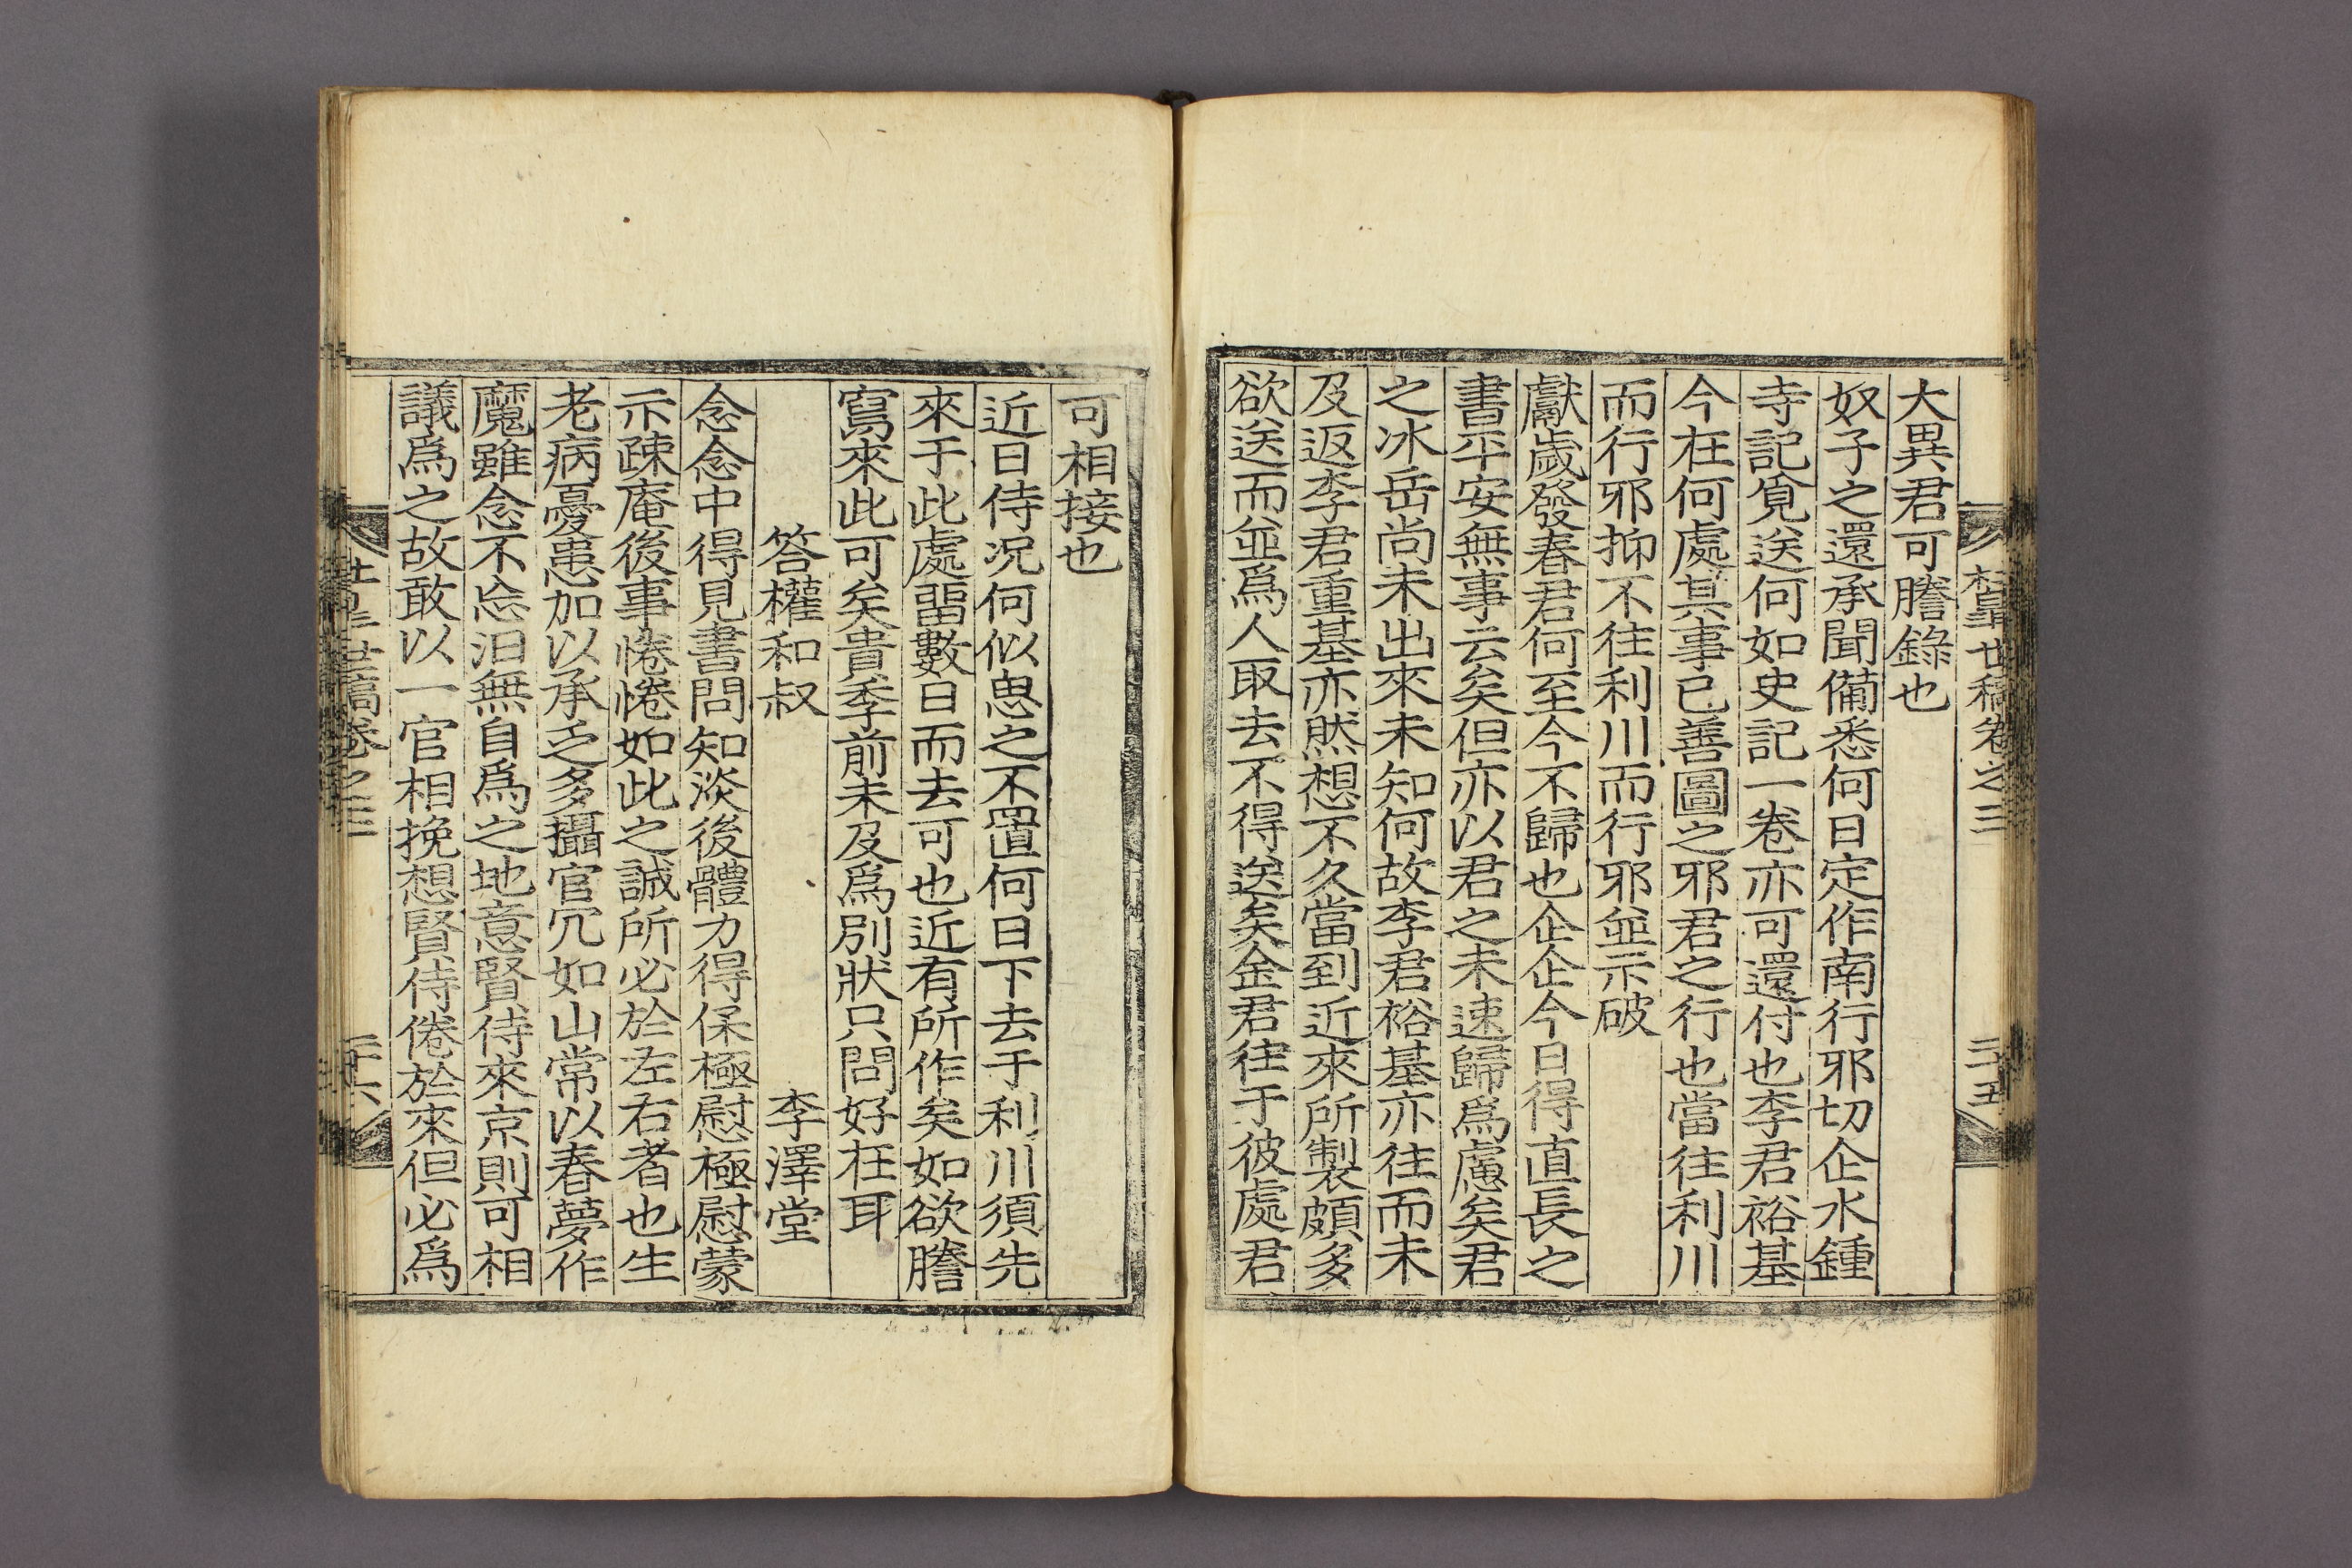 大異君可謄錄也
奴子之還承聞備悉何日定作南行邪切企水鍾
寺記覓送何如史記一卷亦可還付也李君裕基
今在何處其事已善圖之邪君之行也當往利川
而行邪抑不往利川而行邪並示破
獻歲發春君何至今不歸也企企今日得直長之
書平安無事云矣但亦以君之未速歸爲慮矣君
之冰岳尚未出來未知何故李君裕基亦往而未
及返李君重基亦然想不久當到近來所製頗多
欲送而並爲人取去不得送矣金君往于彼處君
可相接也
近日侍况何似思之不置何日下去于利川須先
來于此處留數日而去可也近有所作矣如欲謄
寫來此可矣貴季前未及爲別狀只問好在耳
答權和叔 李澤堂
念念中得見書問知淡後體力得保極慰極慰蒙
示疎庵後事惓惓如此之誠所必於左右者也生
老病憂患加以承乏多攝官冗如山常以春夢作
魔雖念不忘汨無自爲之地意賢侍來京則可相
議爲之故敢以一官相挽想賢侍倦於來但必爲
世稿卷之三
二十五
世稿卷之三
二十六